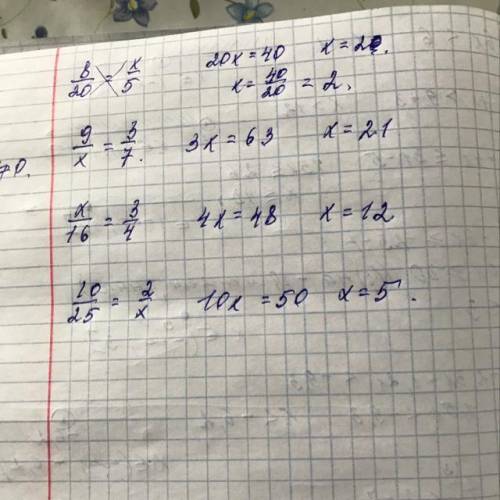 8/20 = x/5 20x = 40 x = 2.
x = 40/20 = 2.
9/x = 3/7. 3x = 63 x = 21
≠0.
x/16 = 3/4 4x = 48 x = 12
10/25 = 2/x 10x = 50 x = 5.